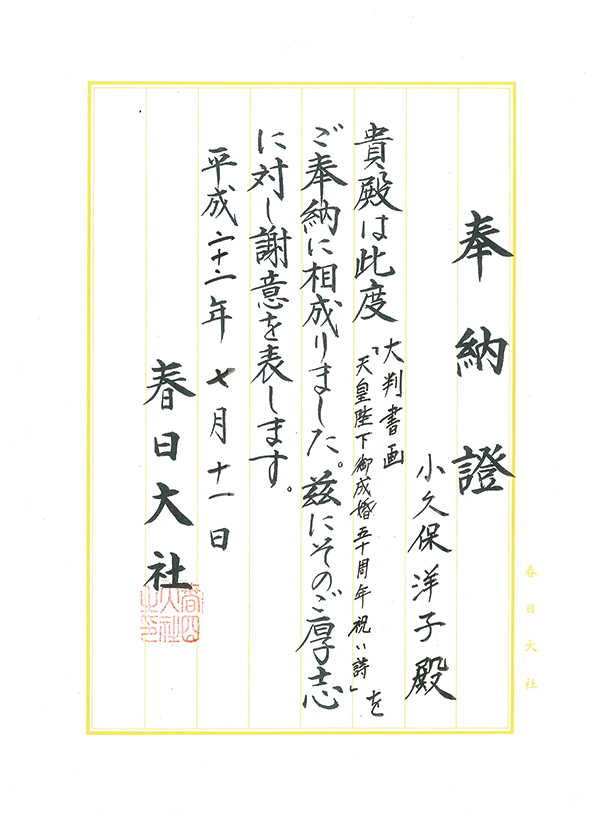 奉納證
小久保洋子殿
貴殿は此度
大判書画
「天皇陛下御成婚五十周年祝い詩」を
ご奉納に相成りました。茲にそのご厚志
に対し謝意を表します。
平成二十二年七月十一日
春日大社
春日大社之印
春日大社